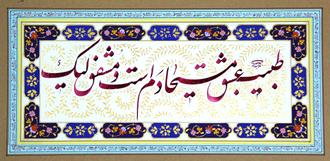 طبیب عشق مسیحا دم است و مشفق لیک